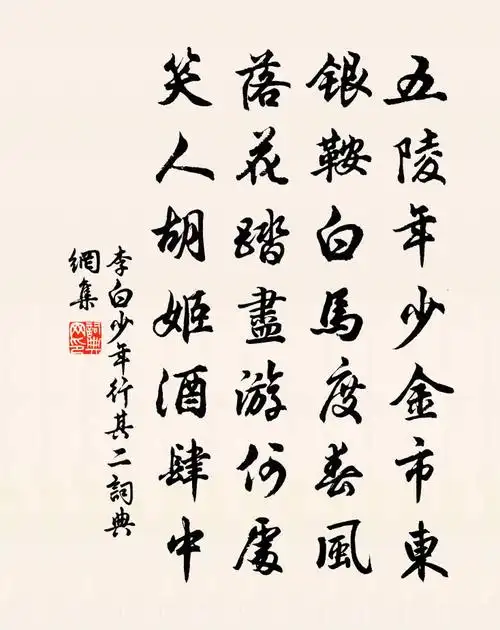 五陵年少金市東
銀鞍白馬度春風
落花踏盡游何處
笑人胡姬酒肆中
李白少年行其二詞典
網集
詞典
网印